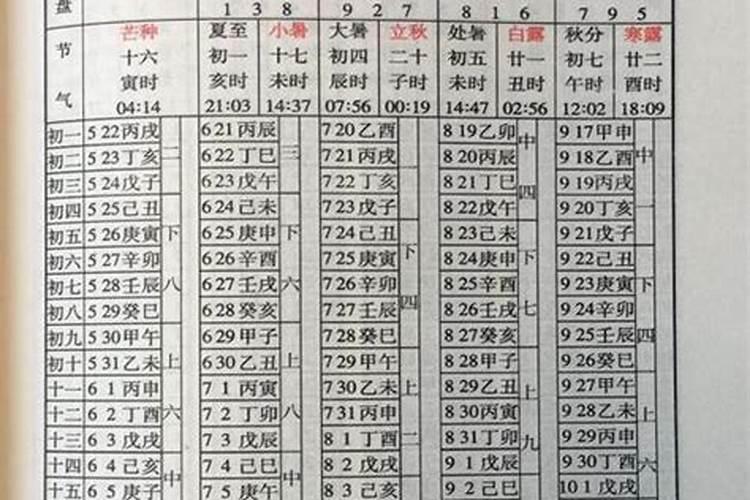 盘 1 3 8 9 2 7 8 1 6 7 9 5
节 芒种 夏至 小暑 大暑 立秋 处暑 白露 秋分 寒露
十六 初一 十七 初四 二十 初五 廿一 初七 廿二
寅时 亥时 未时 辰时 子时 未时 丑时 午时 酉时
气 04:14 21:03 14:37 07:56 00:19 14:47 02:56 12:02 18:09
初一 5 22 丙戌 6 21 丙辰 7 20 乙酉 8 19 乙卯 中 9 17 甲申
初二 5 23 丁亥 二 6 22 丁巳 三 7 21 丙戌 8 20 丙辰 9 18 乙酉 中
初三 5 24 戊子 6 23 戊午 7 22 丁亥 一 8 21 丁巳 四 9 19 丙戌
初四 5 25 己丑 6 24 己未 7 23 戊子 8 22 戊午 9 20 丁亥 一
初五 5 26 庚寅 下 6 25 庚申 下 7 24 己丑 8 23 己未 9 21 戊子
初六 5 27 辛卯 6 26 辛酉 7 25 庚寅 下 8 24 庚申 下 9 22 己丑
初七 5 28 壬辰 八 6 27 壬戌 六 7 26 辛卯 8 25 辛酉 9 23 庚寅 下
初八 5 29 癸巳 6 28 癸亥 7 27 壬辰 四 8 26 壬戌 七 9 24 辛卯
初九 5 30 甲午 6 29 甲子 7 28 癸巳 8 27 癸亥 9 25 壬辰 四
初十 5 31 乙未 上 6 30 乙丑 上 7 29 甲午 8 28 甲子 9 26 癸巳
十一 6 1 丙申 7 1 丙寅 7 30 乙未 上 8 29 乙丑 上 9 27 甲午
十二 6 2 丁酉 六 7 2 丁卯 八 7 31 丙申 8 30 丙寅 9 28 乙未 上
十三 6 3 戊戌 7 3 戊辰 8 1 丁酉 二 8 31 丁卯 九 9 29 丙申
十四 6 4 己亥 中 7 4 己巳 中 8 2 戊戌 9 1 戊辰 9 30 丁酉 六
十五 6 5 庚子 7 5 庚午 8 3 己亥 9 2 己巳 10 1 戊戌